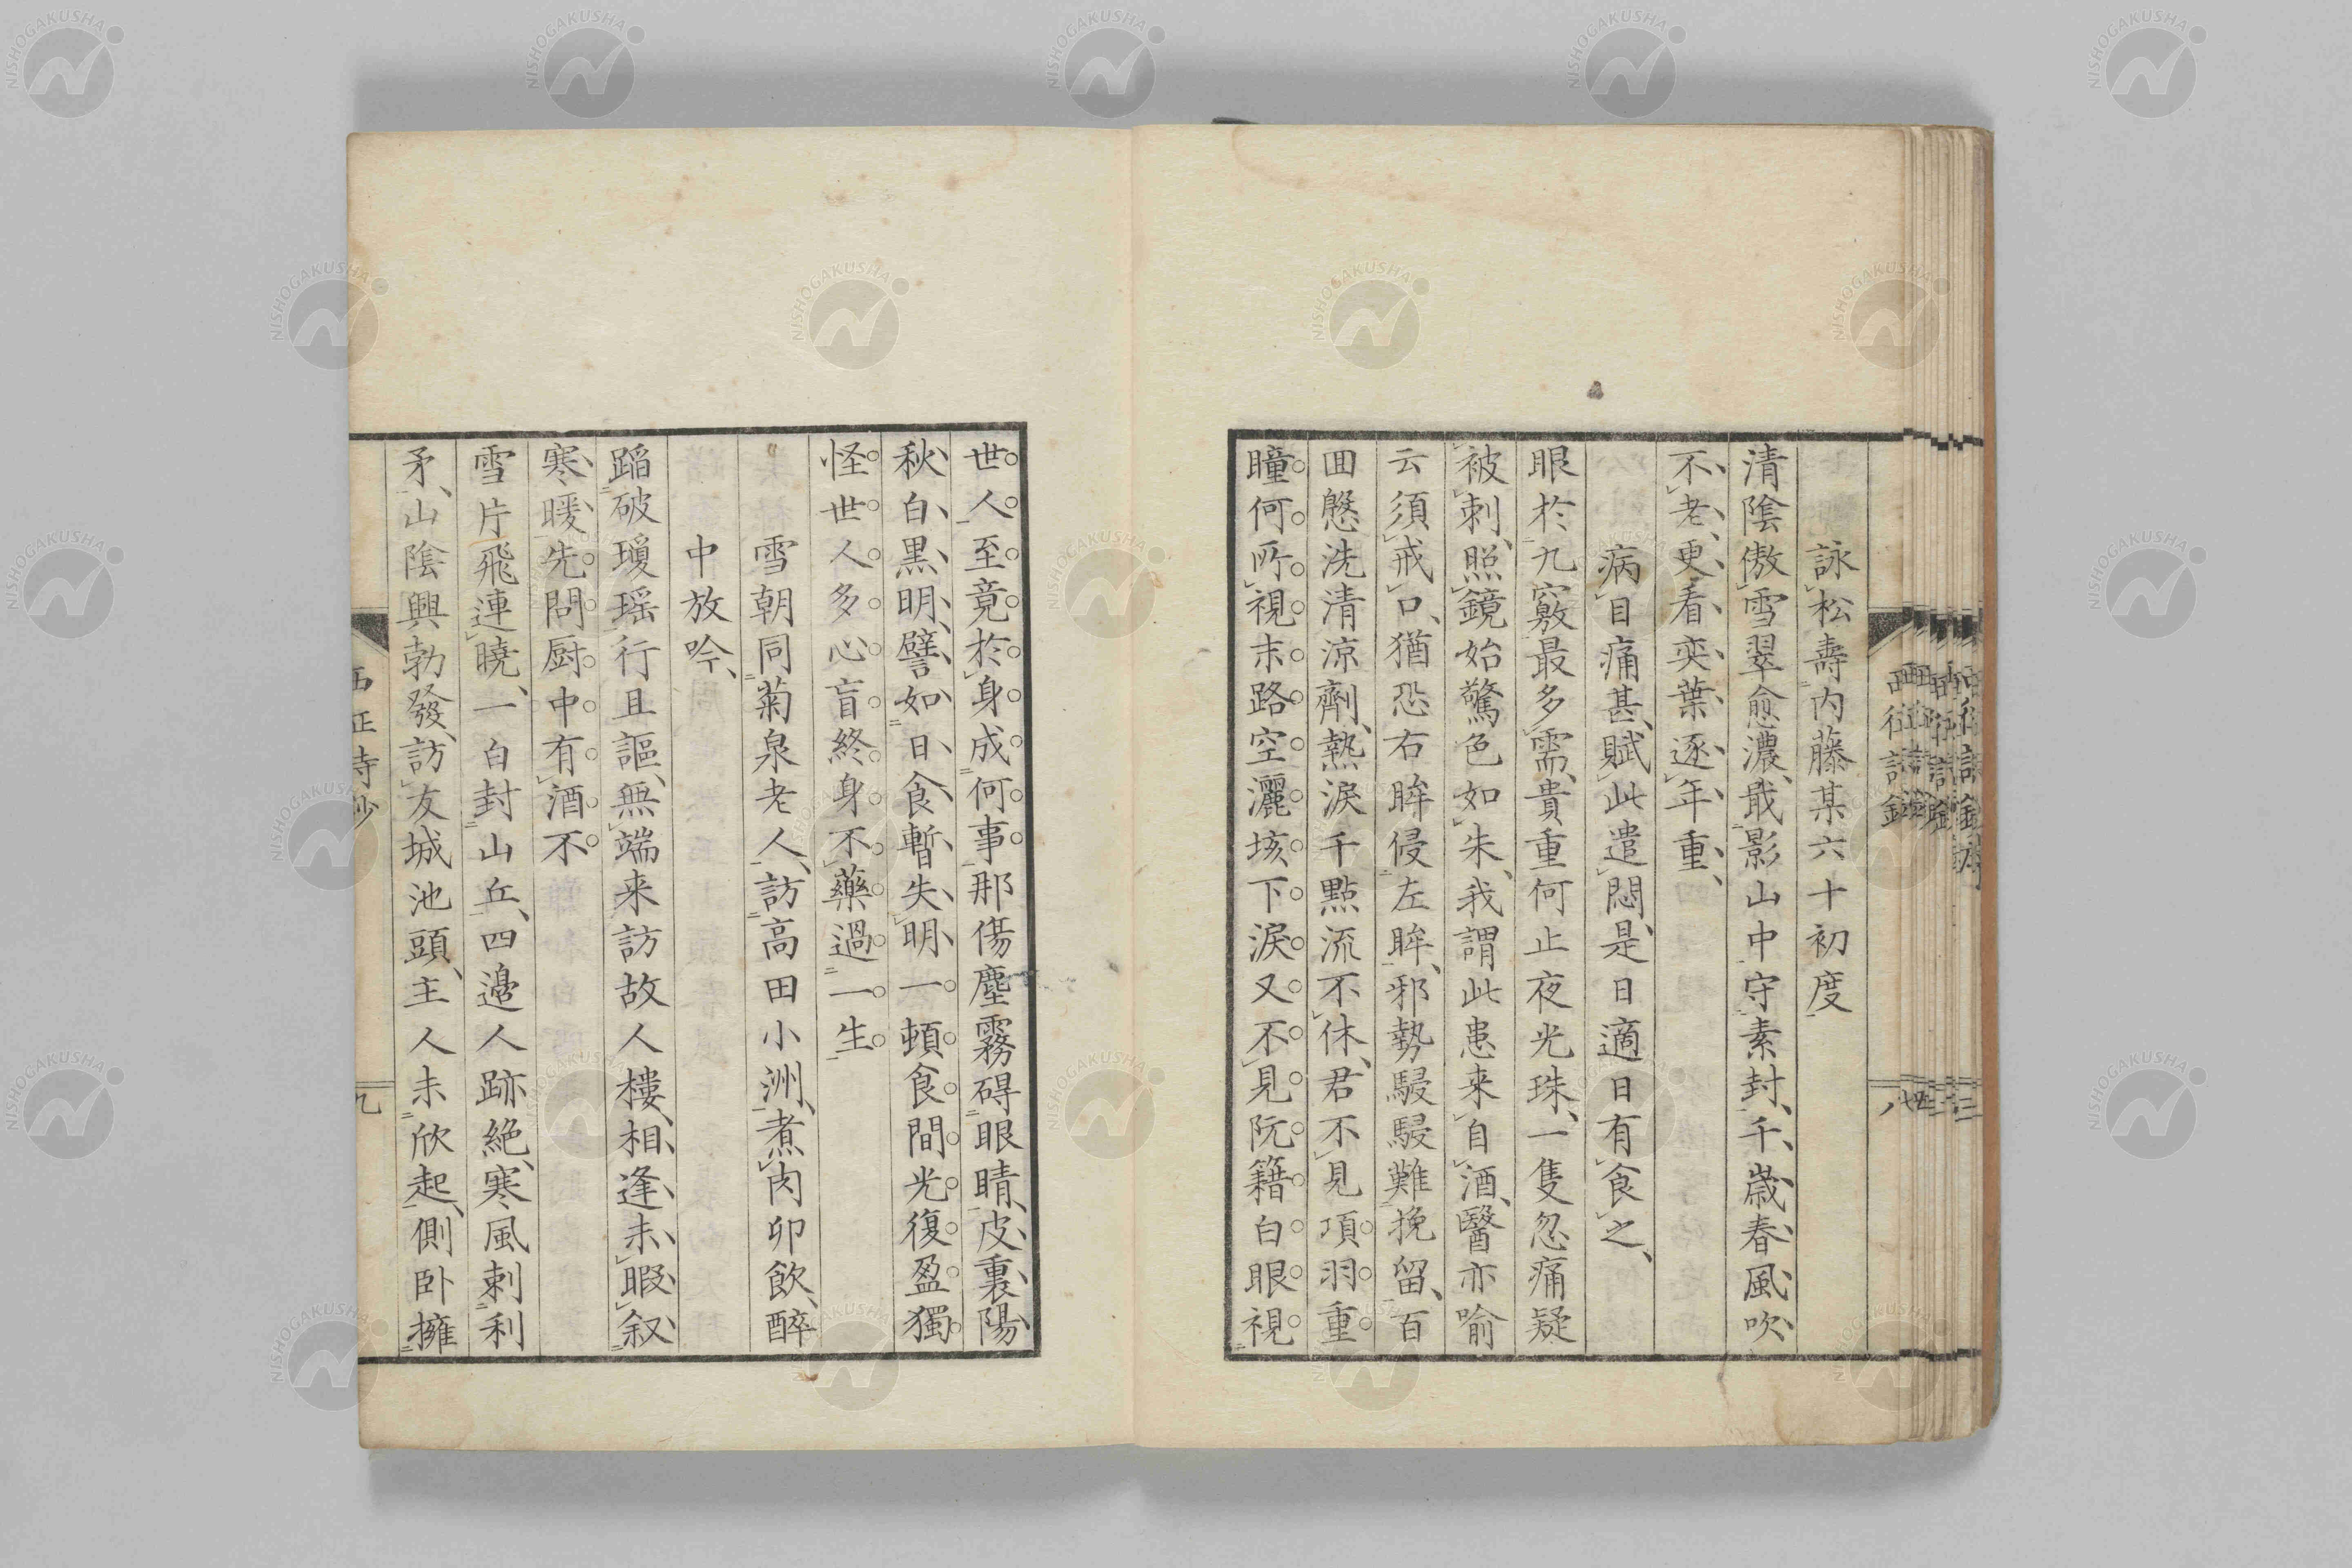 詠松壽内藤某六十初度
清陰傲雪翠愈濃、戢影山中守素封、千歳春風吹
不老、更看奕葉逐年重、
病目痛甚、賦此遣悶、是日適日有食之、
眼於九竅最多需、貴重何止夜光珠、一隻忽痛疑
被刺、照鏡始驚色如朱、我謂此患来自酒、醫亦喻
云須戒口、猶恐右眸侵左眸、邪勢駸駸難挽留、百
囬慇洗清涼劑、熱涙千點流不休、君不見項羽重
瞳何所視末路空灑垓下涙又不見阮籍白眼視
世人至竟於身成何事那傷塵霧碍眼睛、皮裏陽
秋白黒明、譬如日食暫失明、一頓食間光復盈獨
怪世人多心盲終身不藥過一生
雪朝同菊泉老人、訪高田小洲、煮肉卯飲、醉
中放吟、
蹈破瓊瑶行且謳、無端来訪故人樓、相逢未暇叙
寒暖、先問厨中有酒不
雪片飛連曉、一白封山丘、四邉人跡絶、寒風刺利
矛、山陰興勃發、訪友城池頭、主人未欣起、側卧擁
九
八